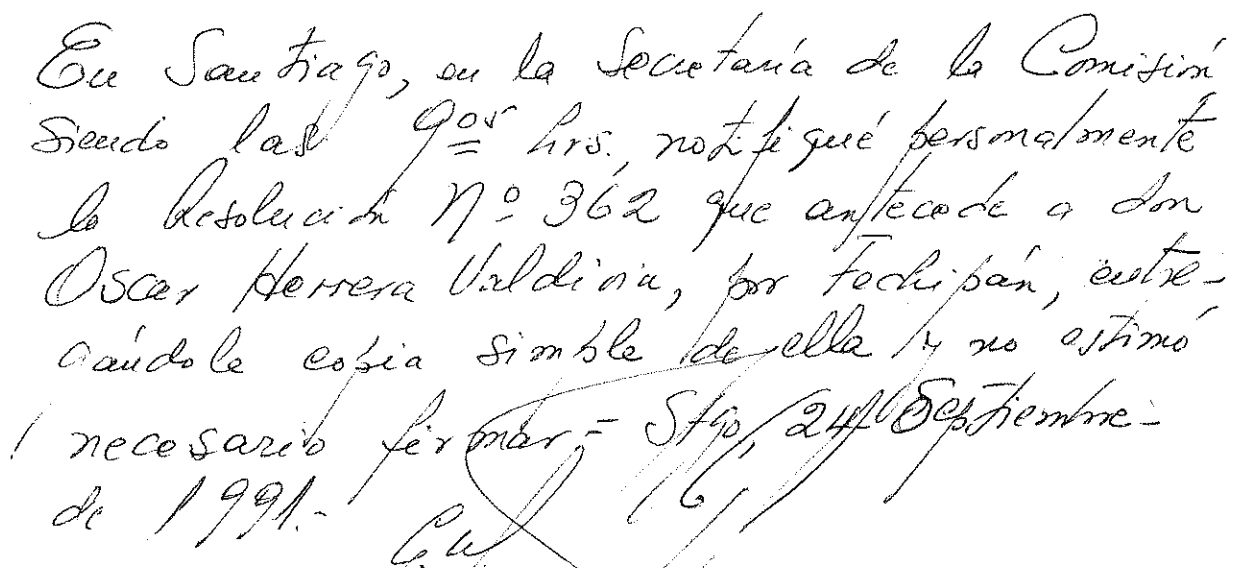 En Santiago, en la Secretaría de la Comisión
siendo las 9:05 hrs., notifiqué personalmente
la Resolución Nº 362 que antecede a don
Oscar Herrera Valdivia, por Fechipán, entre-
gándole copia simple de ella y no estimó
necesario firmar.- Stgo, 24 Septiembre-
de 1991.-